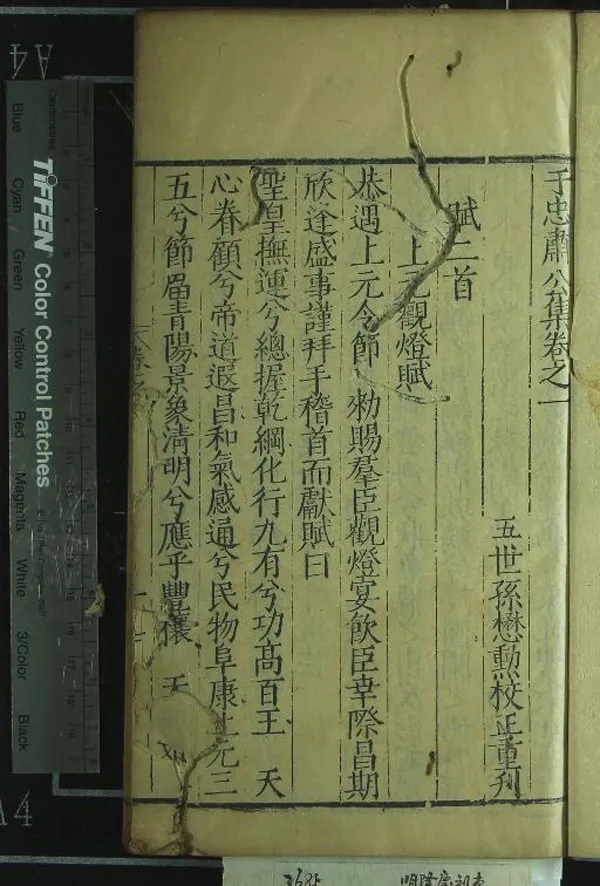 于忠肅公集卷之一
五世孫懋勳校正重刋
賦二首
上元觀燈賦
恭遇上元令節 勑賜羣臣觀燈宴飲臣幸際昌期
欣逢盛事謹拜手稽首而獻賦曰
聖皇撫運兮總握乾綱化行九有兮功高百王 天
心眷顧兮帝道遐昌和氣感通兮民物阜康上元三
五兮節屆青陽景象清明兮應乎豐穰 天
卷之一
TIFFEN Color Control Patches
Centimetres
Blue Cyan Green Yellow Red Magenta White 3/Color Black
A4
A4
3685 明隆慶刻本